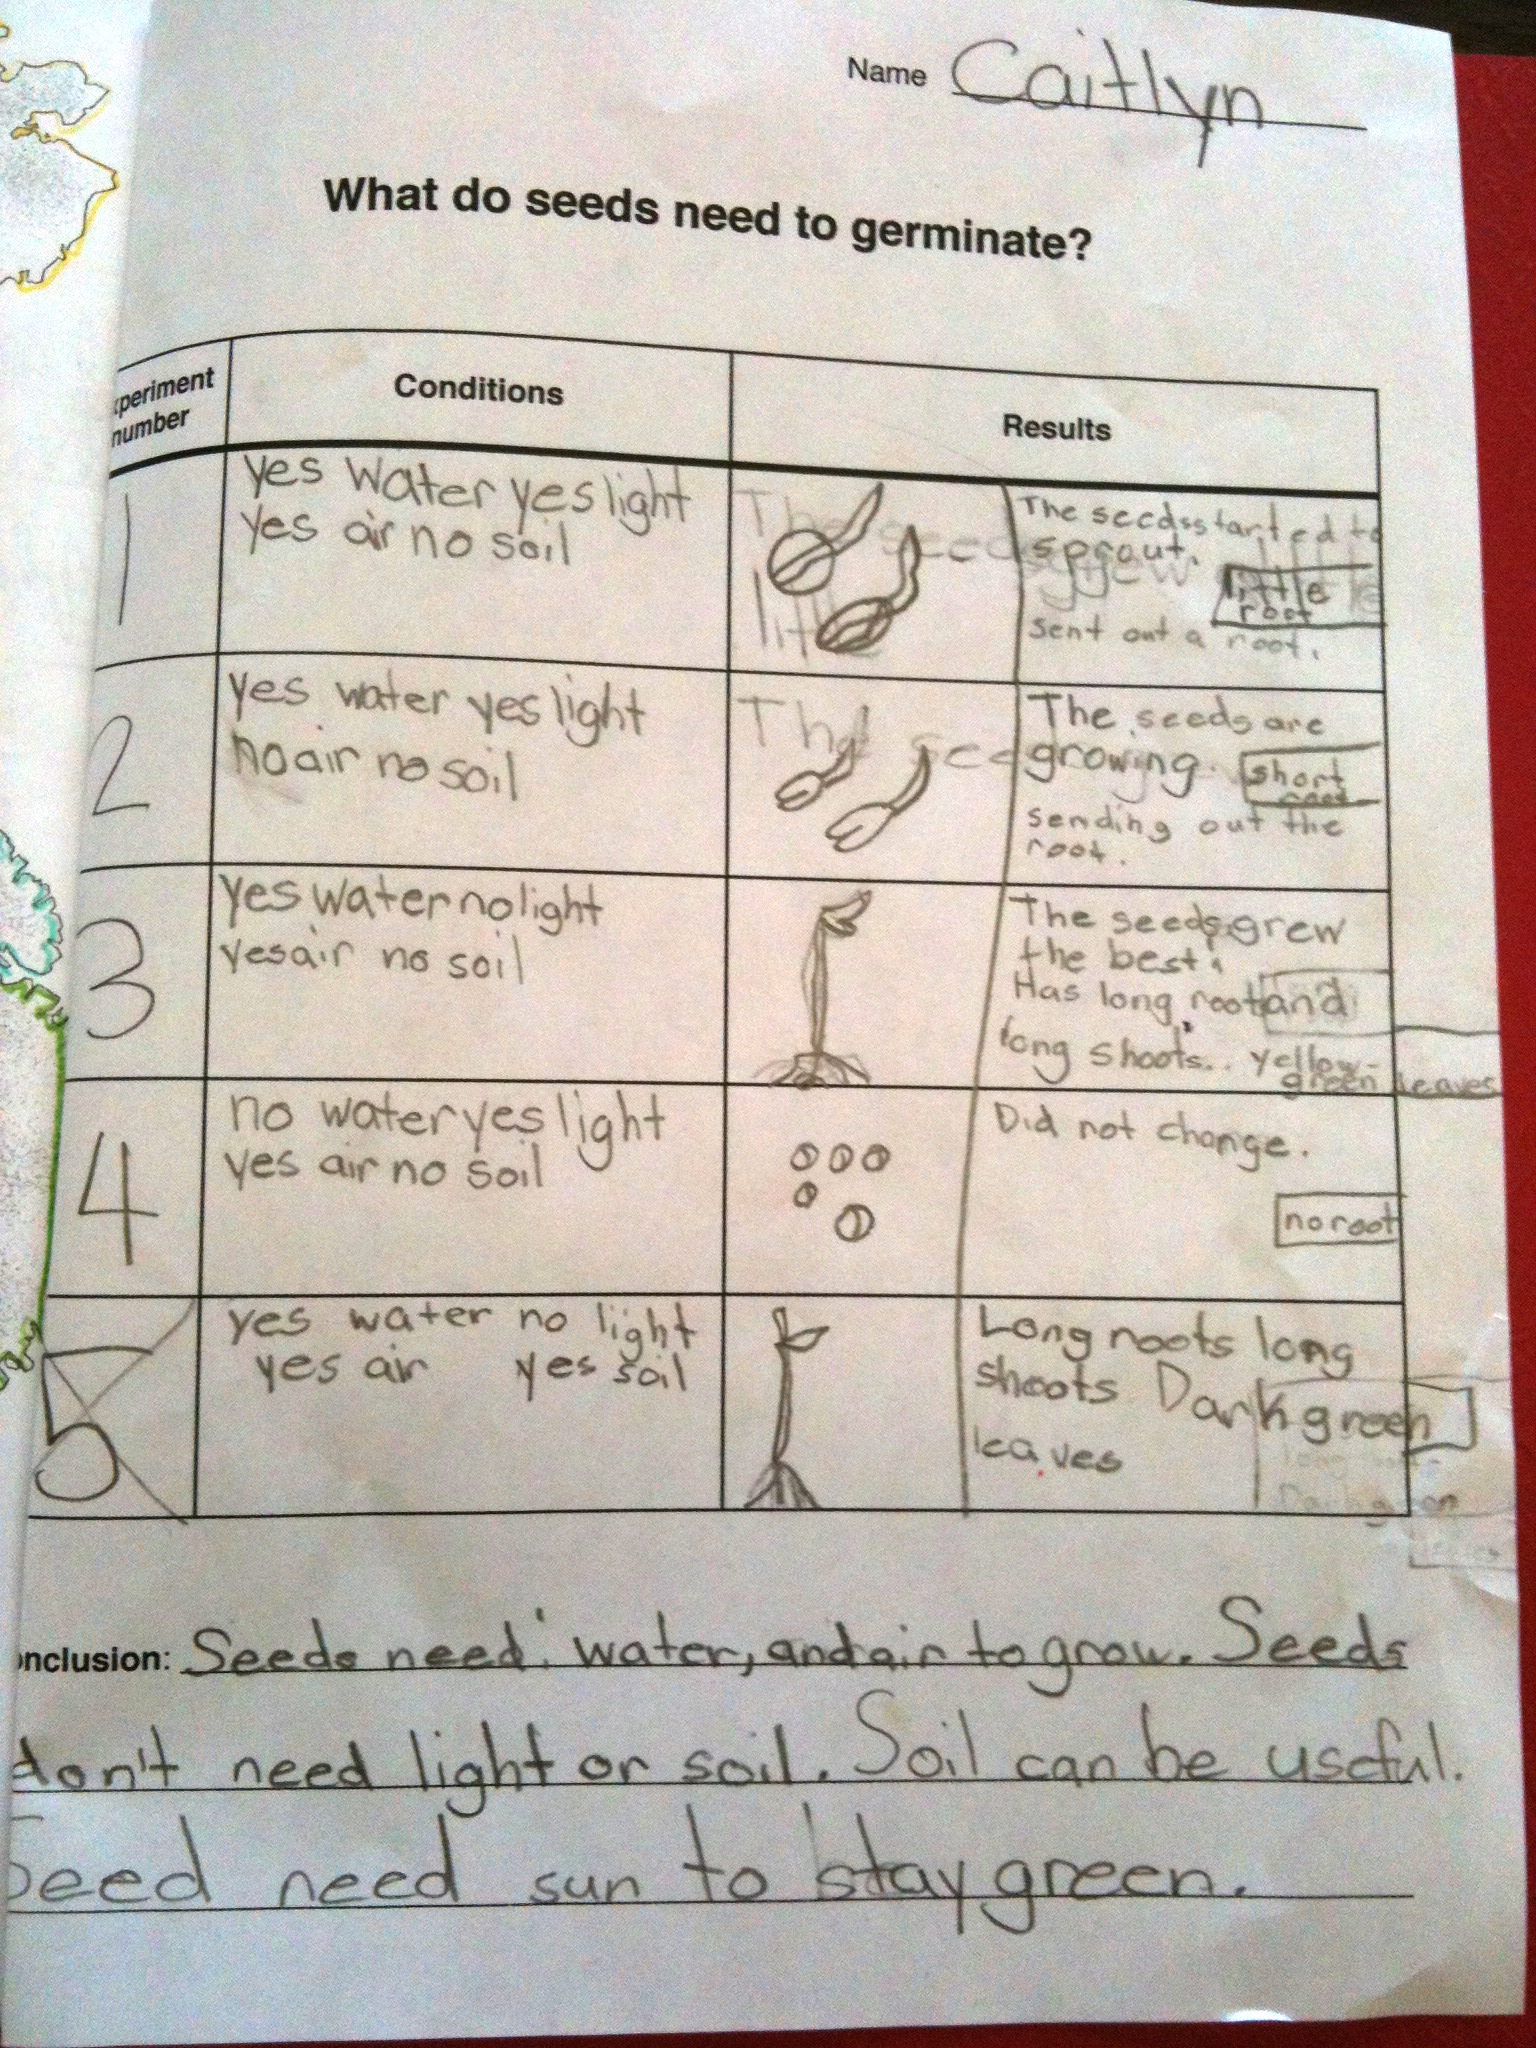 Name Caitlyn
What do seeds need to germinate?
xperiment
number
Conditions
Results
1
yes water yes light
yes air no soil
The seeds started to
sprout.
little
root
sent out a root.
2
yes water yes light
no air no soil
The seeds are
growing.
short
root
sending out the
root.
3
yes water no light
yes air no soil
The seeds grew
the best.
Has long root and
long shoots.. yellow-
green leaves
4
no water yes light
yes air no soil
Did not change.
no root
5
yes water no light
yes air yes soil
Long roots long
shoots Dark green
leaves
onclusion: Seeds need water, and air to grow. Seeds
don't need light or soil. Soil can be useful.
Seed need sun to stay green.